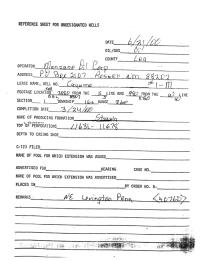 REFERENCE SHEET FOR UNDESIGNATED WELLS
DATE 6/21/00
OIL/GAS Oil
COUNTY Lea
OPERATOR Manzano Oil Corp
ADDRESS PO Box 2107 Roswell NM 88202
LEASE NAME, WELL NO. #1-M
FOOTAGE LOCATION FROM THE S LINE AND FROM THE LINE
SECTION 1 TOWNSHIP 16s RANGE 36e
COMPLETION DATE 3/24/00
NAME OF PRODUCING FORMATION Strawn
TOP OF PERFORATIONS 11636 - 11678
DEPTH TO CASING SHOE
C-123 FILED
NAME OF POOL FOR WHICH EXTENSION WAS ASKED
ADVERTISED FOR HEARING CASE NO.
NAME OF POOL FOR WHICH EXTENSION WAS ADVERTISED
PLACED IN BY ORDER NO. R-
REMARKS NE Lovington Penn <40760>